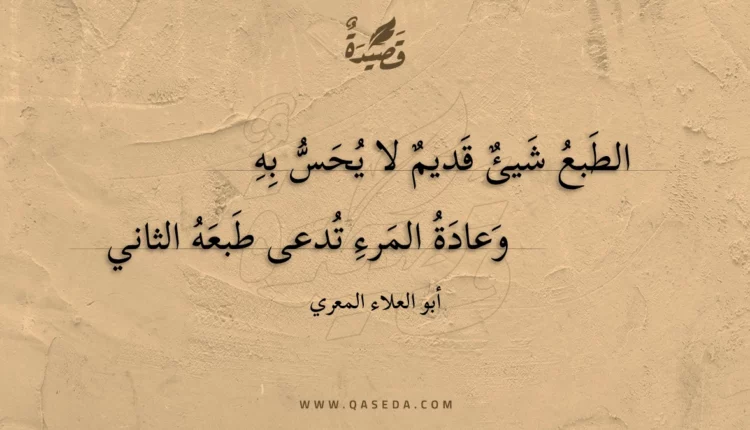 قَصيْدَةٌ
الطَبعُ شَيئٌ قَديمٌ لا يُحَسُّ بِهِ
وَعادَةُ المَرءِ تُدعى طَبعَهُ الثاني
أبو العلاء المعري
WWW.QASEDA.COM